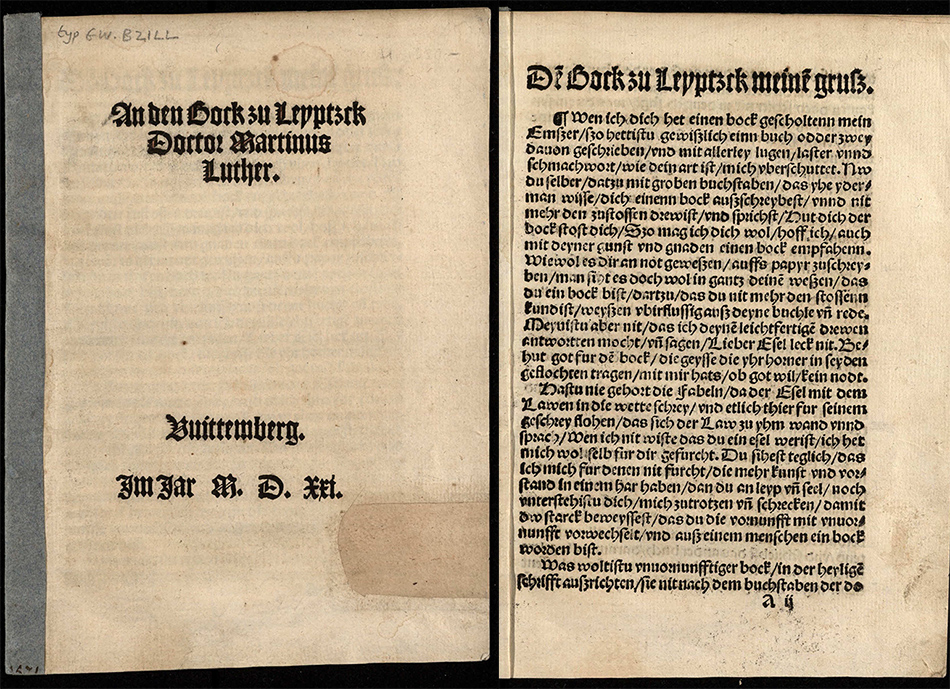 typ GW. BZILL
An den Bock zu Leyptzck
Doctor Martinus
Luther.
Vuittemberg.
Im Jar M. D. XXI.
Dē Bock zu Leyptzck meinē grusz.
¶ Wen ich dich het einen bock gescholtenn mein
Emszer/szo hettistu gewiszlich einn buch odder zwey
dauon geschrieben/vnd mit allerley lugen/laster vnnd
schmachwort/wie dein art ist/mich vberschuttet. Nw
du selber/datzu mit groben buchstaben/das yhe yder⸗
man wisse/dich einenn bock auszschreybest/vnnd nit
mehr den zustossen drewist/vnd sprichst/Hut dich der
bock stost dich/Szo mag ich dich wol/hoff ich/auch
mit deyner gunst vnd gnaden einen bock empfahenn.
Wiewol es dir an not geweszen/auffs papyr zuschrey⸗
ben/man siht es doch wol in gantz deinē weszen/das
du ein bock bist/dartzu/das du nit mehr den stossenn
kund ist/weyszen vbirflussig ausz deyne buchle vn̄ rede.
Meynistu aber nit/das ich deynē leichtfertigē drewen
antwortten mocht/vn̄ sagen/Lieber Esel leck nit. Be⸗
hut got fur dē bock/die geysse die yhr horner in seyden
geflochten tragen/mit mir hats/ob got wil/kein nodt.
Hastu nie gehort die Fabeln/da der Esel mit dem
Lawen in die wette schrey/vnd etlich thier fur seinem
geschrey flohen/das sich der Law zu yhm wand vnnd
sprach/Wen ich nit wiste das du ein esel werist/ich het
mich wol selb fur dir gefurcht. Du sihest teglich/das
ich mich fur denen nit furcht/die mehr kunst vnd vor⸗
stand in einem har haben/dan du an leyp vn̄ seel/noch
vnterstehistu dich/mich zutrotzen vn̄ schrecken/damit
dw starck beweyssest/das du die vornunfft mit vnuor⸗
nunfft vorwechselt/vnd ausz einem menschen ein bock
worden bist.
Was woltistu vnuornunfftiger bock/in der heyligē
schrifft auszrichten/sie nit nach dem buchstaben der do
A ij